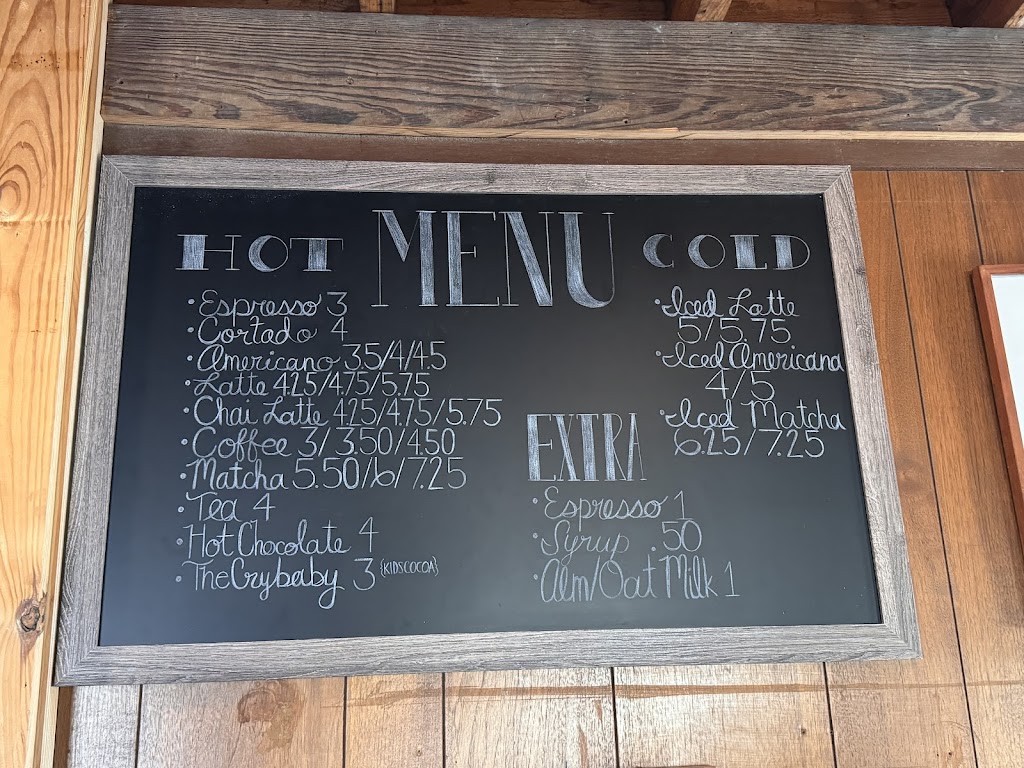 MENU
HOT
• Espresso 3
• Cortado 4
• Americano 3.5/4/4.5
• Latte 4.25/4.75/5.75
• Chai Latte 4.25/4.75/5.75
• Coffee 3/3.50/4.50
• Matcha 5.50/6/7.25
• Tea 4
• Hot Chocolate 4
• The Crybaby 3 {KIDS COCOA}
COLD
• Iced Latte
5/5.75
• Iced Americana
4/5
• Iced Matcha
6.25/7.25
EXTRA
• Espresso 1
• Syrup .50
• Alm/Oat Milk 1